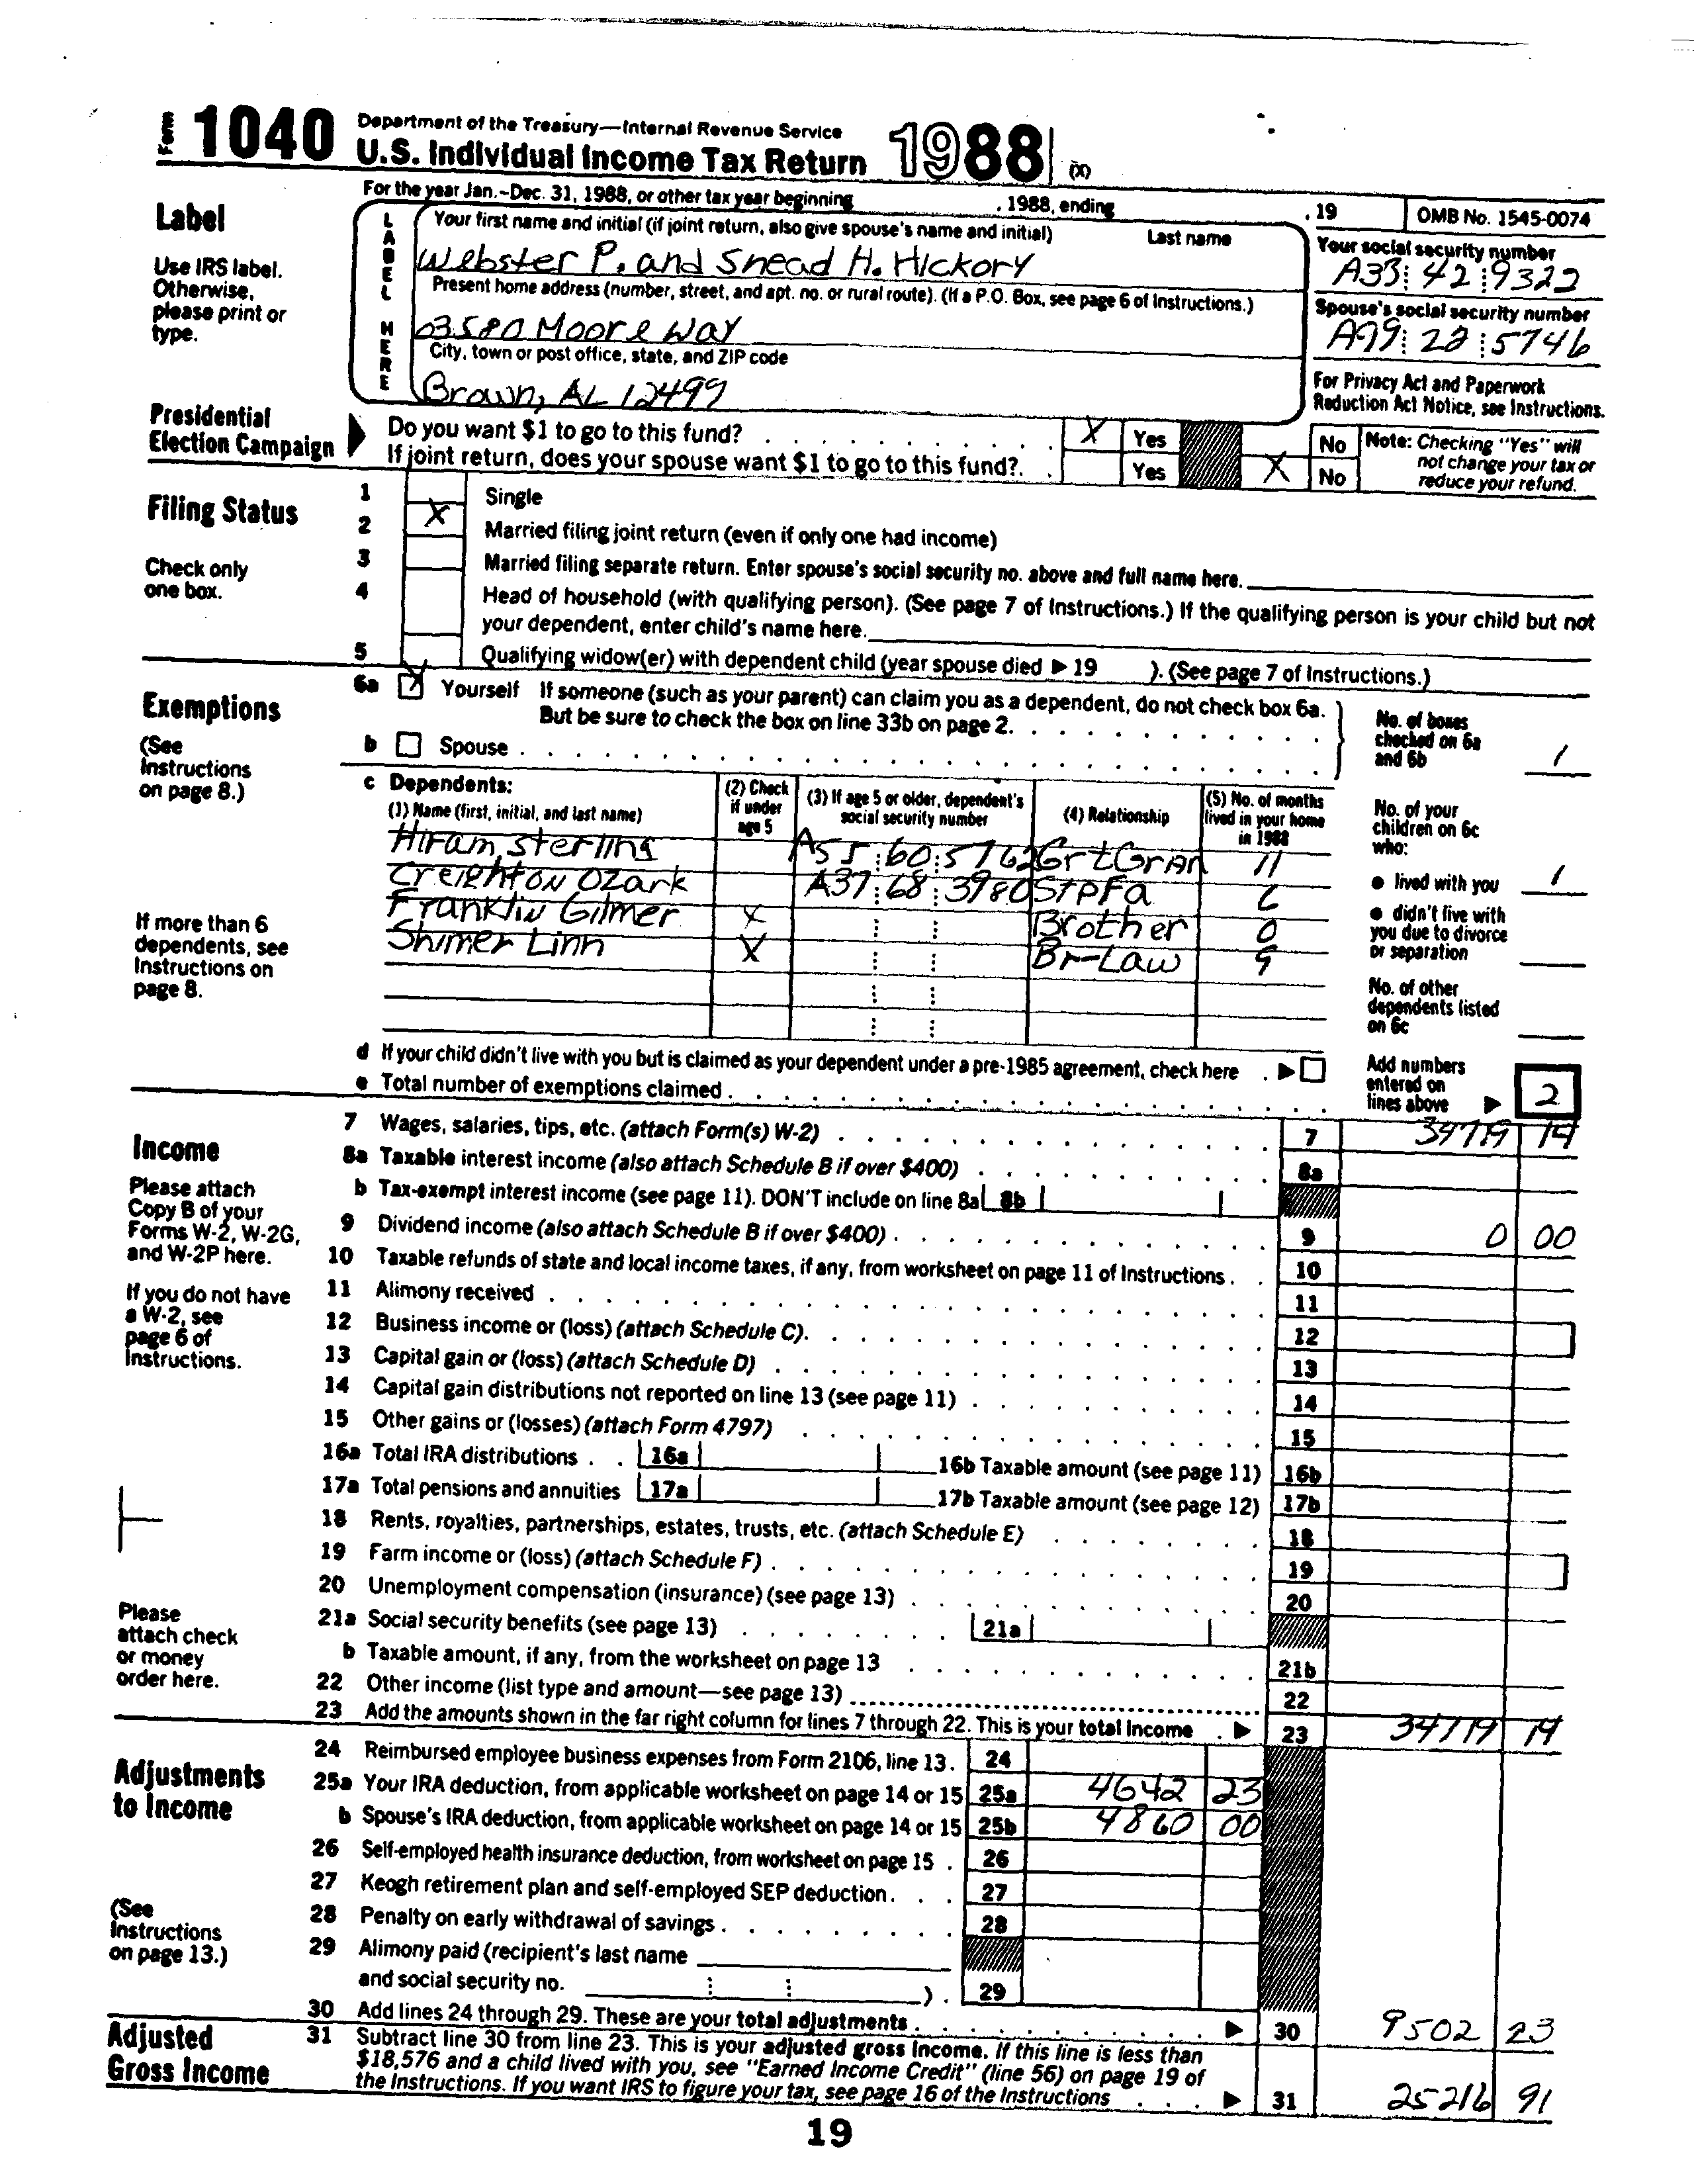 Form 1040 Department of the Treasury—Internal Revenue Service
U.S. Individual Income Tax Return 1988 (X)
For the year Jan.–Dec. 31, 1988, or other tax year beginning , 1988, ending , 19 OMB No. 1545-0074
Label
Use IRS label.
Otherwise,
please print or
type.
LABEL HERE
Your first name and initial (if joint return, also give spouse's name and initial) Last name
Webster P. and Snead H. Hickory
Your social security number
A33 42 9322
Present home address (number, street, and apt. no. or rural route). (If a P.O. Box, see page 6 of Instructions.)
03580 Moore Way
Spouse's social security number
A99 22 5746
City, town or post office, state, and ZIP code
Brown, AL 12499
For Privacy Act and Paperwork
Reduction Act Notice, see Instructions.
Presidential
Election Campaign
Do you want $1 to go to this fund? X Yes No
If joint return, does your spouse want $1 to go to this fund?. Yes X No
Note: Checking "Yes" will
not change your tax or
reduce your refund.
Filing Status
Check only
one box.
1 Single
2 X Married filing joint return (even if only one had income)
3 Married filing separate return. Enter spouse's social security no. above and full name here.
4 Head of household (with qualifying person). (See page 7 of Instructions.) If the qualifying person is your child but not
your dependent, enter child's name here.
5 Qualifying widow(er) with dependent child (year spouse died ▶ 19 ). (See page 7 of Instructions.)
Exemptions
(See
Instructions
on page 8.)
6a X Yourself If someone (such as your parent) can claim you as a dependent, do not check box 6a.
But be sure to check the box on line 33b on page 2.
b Spouse
No. of boxes
checked on 6a
and 6b 1
c Dependents:
(1) Name (first, initial, and last name)
(2) Check
if under
age 5
(3) If age 5 or older, dependent's
social security number
(4) Relationship
(5) No. of months
lived in your home
in 1988
Hiram Sterling A55 60 5762 GrtGran 11
Creighton Ozark A37 68 3980 StpFa 6
Franklin Gilmer X Brother 0
Shimer Linn X Br-Law 9
If more than 6
dependents, see
Instructions on
page 8.
No. of your
children on 6c
who:
● lived with you 1
● didn't live with
you due to divorce
or separation
No. of other
dependents listed
on 6c
d If your child didn't live with you but is claimed as your dependent under a pre-1985 agreement, check here ▶
e Total number of exemptions claimed
Add numbers
entered on
lines above ▶ 2
Income
Please attach
Copy B of your
Forms W-2, W-2G,
and W-2P here.
If you do not have
a W-2, see
page 6 of
Instructions.
Please
attach check
or money
order here.
7 Wages, salaries, tips, etc. (attach Form(s) W-2) 7 34719 14
8a Taxable interest income (also attach Schedule B if over $400) 8a
b Tax-exempt interest income (see page 11). DON'T include on line 8a 8b
9 Dividend income (also attach Schedule B if over $400) 9 0 00
10 Taxable refunds of state and local income taxes, if any, from worksheet on page 11 of Instructions 10
11 Alimony received 11
12 Business income or (loss) (attach Schedule C). 12
13 Capital gain or (loss) (attach Schedule D) 13
14 Capital gain distributions not reported on line 13 (see page 11) 14
15 Other gains or (losses) (attach Form 4797) 15
16a Total IRA distributions 16a 16b Taxable amount (see page 11) 16b
17a Total pensions and annuities 17a 17b Taxable amount (see page 12) 17b
18 Rents, royalties, partnerships, estates, trusts, etc. (attach Schedule E) 18
19 Farm income or (loss) (attach Schedule F) 19
20 Unemployment compensation (insurance) (see page 13) 20
21a Social security benefits (see page 13) 21a
b Taxable amount, if any, from the worksheet on page 13 21b
22 Other income (list type and amount—see page 13) 22
23 Add the amounts shown in the far right column for lines 7 through 22. This is your total income ▶ 23 34719 14
Adjustments
to Income
(See
Instructions
on page 13.)
24 Reimbursed employee business expenses from Form 2106, line 13. 24
25a Your IRA deduction, from applicable worksheet on page 14 or 15 25a 4642 23
b Spouse's IRA deduction, from applicable worksheet on page 14 or 15 25b 4860 00
26 Self-employed health insurance deduction, from worksheet on page 15 26
27 Keogh retirement plan and self-employed SEP deduction. 27
28 Penalty on early withdrawal of savings 28
29 Alimony paid (recipient's last name
and social security no. ). 29
30 Add lines 24 through 29. These are your total adjustments ▶ 30 9502 23
Adjusted
Gross Income
31 Subtract line 30 from line 23. This is your adjusted gross income. If this line is less than
$18,576 and a child lived with you, see "Earned Income Credit" (line 56) on page 19 of
the Instructions. If you want IRS to figure your tax, see page 16 of the Instructions ▶ 31 25216 91
19